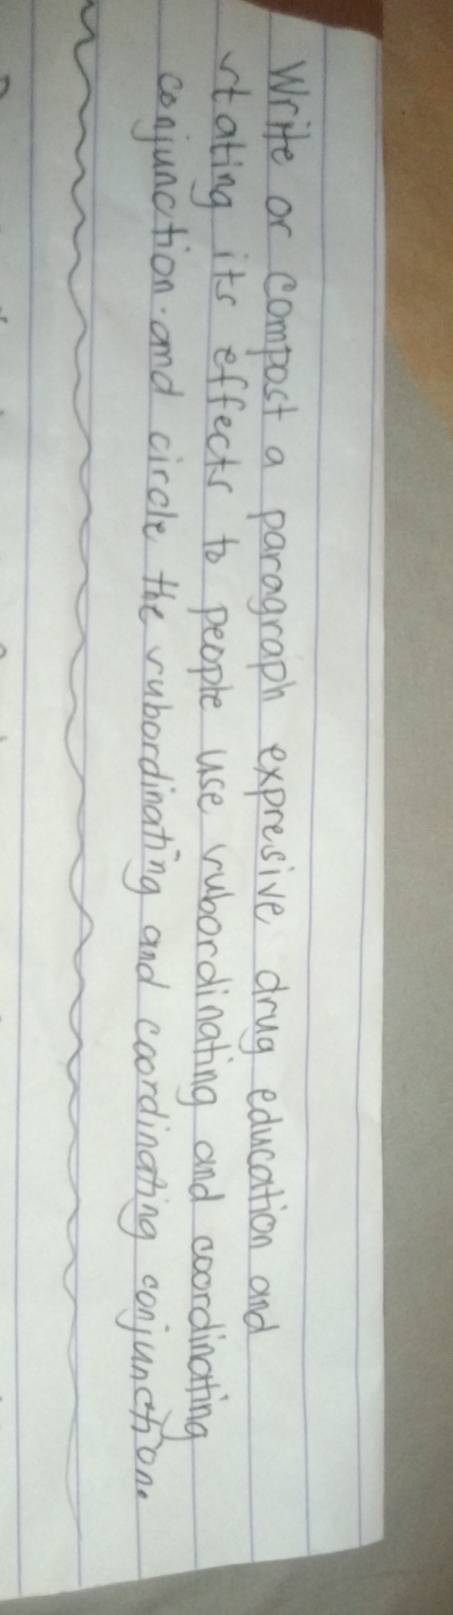 Write or compost a paragraph expresive drug education and
stating its effects to people use subordinating and coordinating
conjunction. and circle the subordinating and coordinating conjunction.